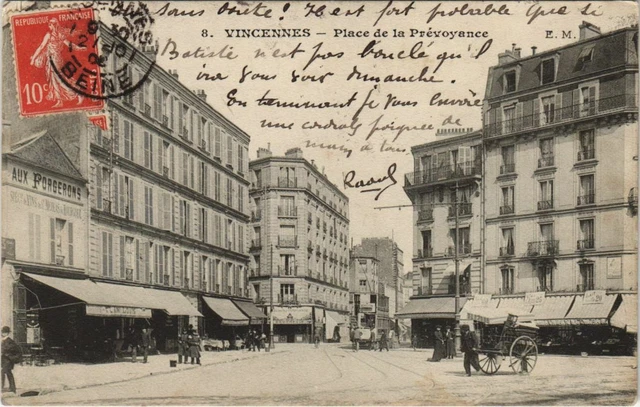 sans doute! Il est fort probable que si
8. VINCENNES — Place de la Prévoyance E. M.
Batiste n'est pas bouclé qu'il
ira vous voir dimanche.
En terminant je vous envoie
une cordiale poignée de
mains à tous.
Raoul
10c
SEINE
AUX FORGERONS